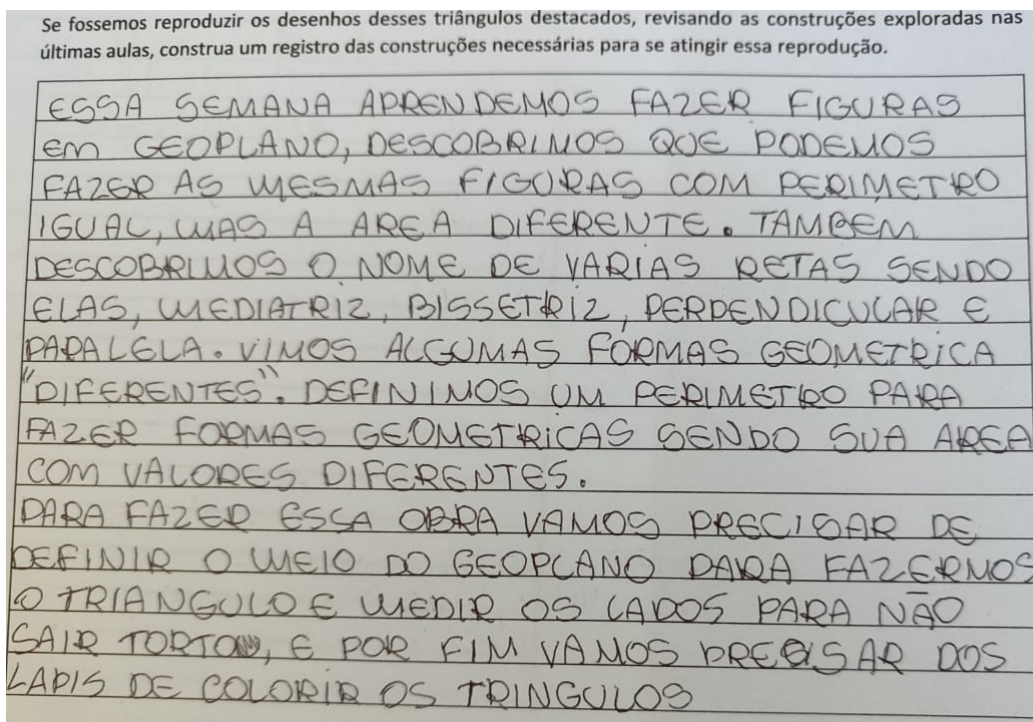 Se fossemos reproduzir os desenhos desses triângulos destacados, revisando as construções exploradas nas
últimas aulas, construa um registro das construções necessárias para se atingir essa reprodução.
ESSA SEMANA APRENDEMOS FAZER FIGURAS
em GEOPLANO, DESCOBRIMOS QUE PODEMOS
FAZER AS MESMAS FIGURAS COM PERIMETRO
IGUAL, MAS A AREA DIFERENTE. TAMBEM
DESCOBRIMOS O NOME DE VARIAS RETAS SENDO
ELAS, MEDIATRIZ, BISSETRIZ, PERPENDICULAR E
PARALELA. VIMOS ALGUMAS FORMAS GEOMETRICA
"DIFERENTES". DEFINIMOS UM PERIMETRO PARA
FAZER FORMAS GEOMETRICAS SENDO SUA AREA
COM VALORES DIFERENTES.
PARA FAZER ESSA OBRA VAMOS PRECISAR DE
DEFINIR O MEIO DO GEOPLANO PARA FAZERMOS
O TRIANGULO E MEDIR OS LADOS PARA NÃO
SAIR TORTO, E POR FIM VAMOS PRECISAR DOS
LAPIS DE COLORIR OS TRINGULOS